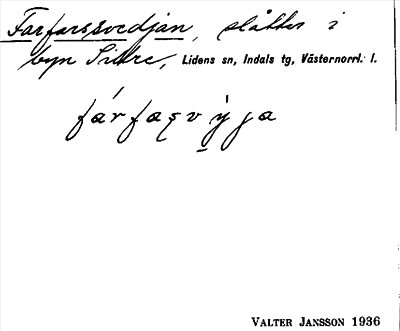 Farfarssvedjan, slåtter i
byn Sillre, Lidens sn, Indals tg, Västernorrl. l.
fárfaʂvý̠ja
VALTER JANSSON 1936